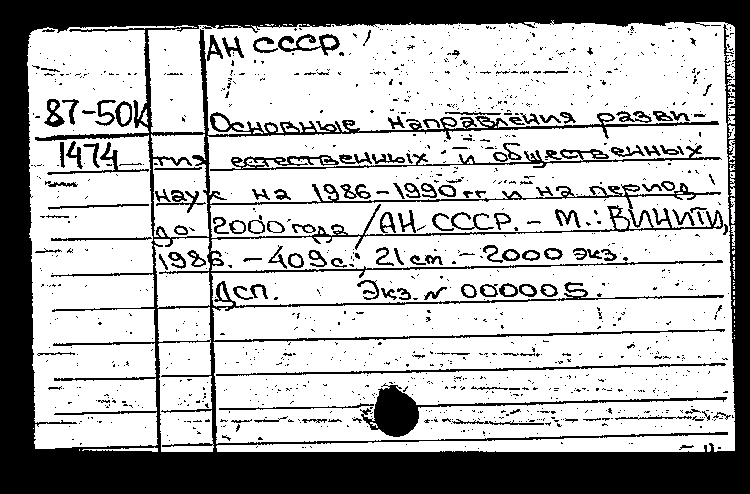 АН СССР.
87-50К
1474
Основные направления разви-
тия естественных и общественных
наук на 1986-1990 гг. и на период
до 2000 года / АН СССР. - М.: ВИНИТИ,
1986. - 409 с.; 21 см. - 2000 экз.
ДСП. Экз. № 000005.